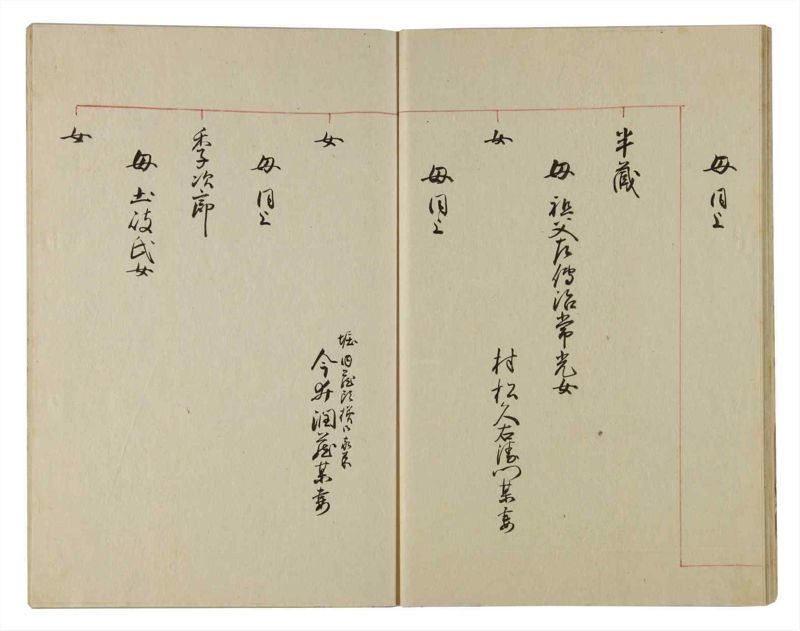 母同上
半蔵
母祖父左傳治常光女
女
村松久右衛門某妻
母同上
女
母同上
今井潤蔵某妻
季次郎
母土岐氏女
女